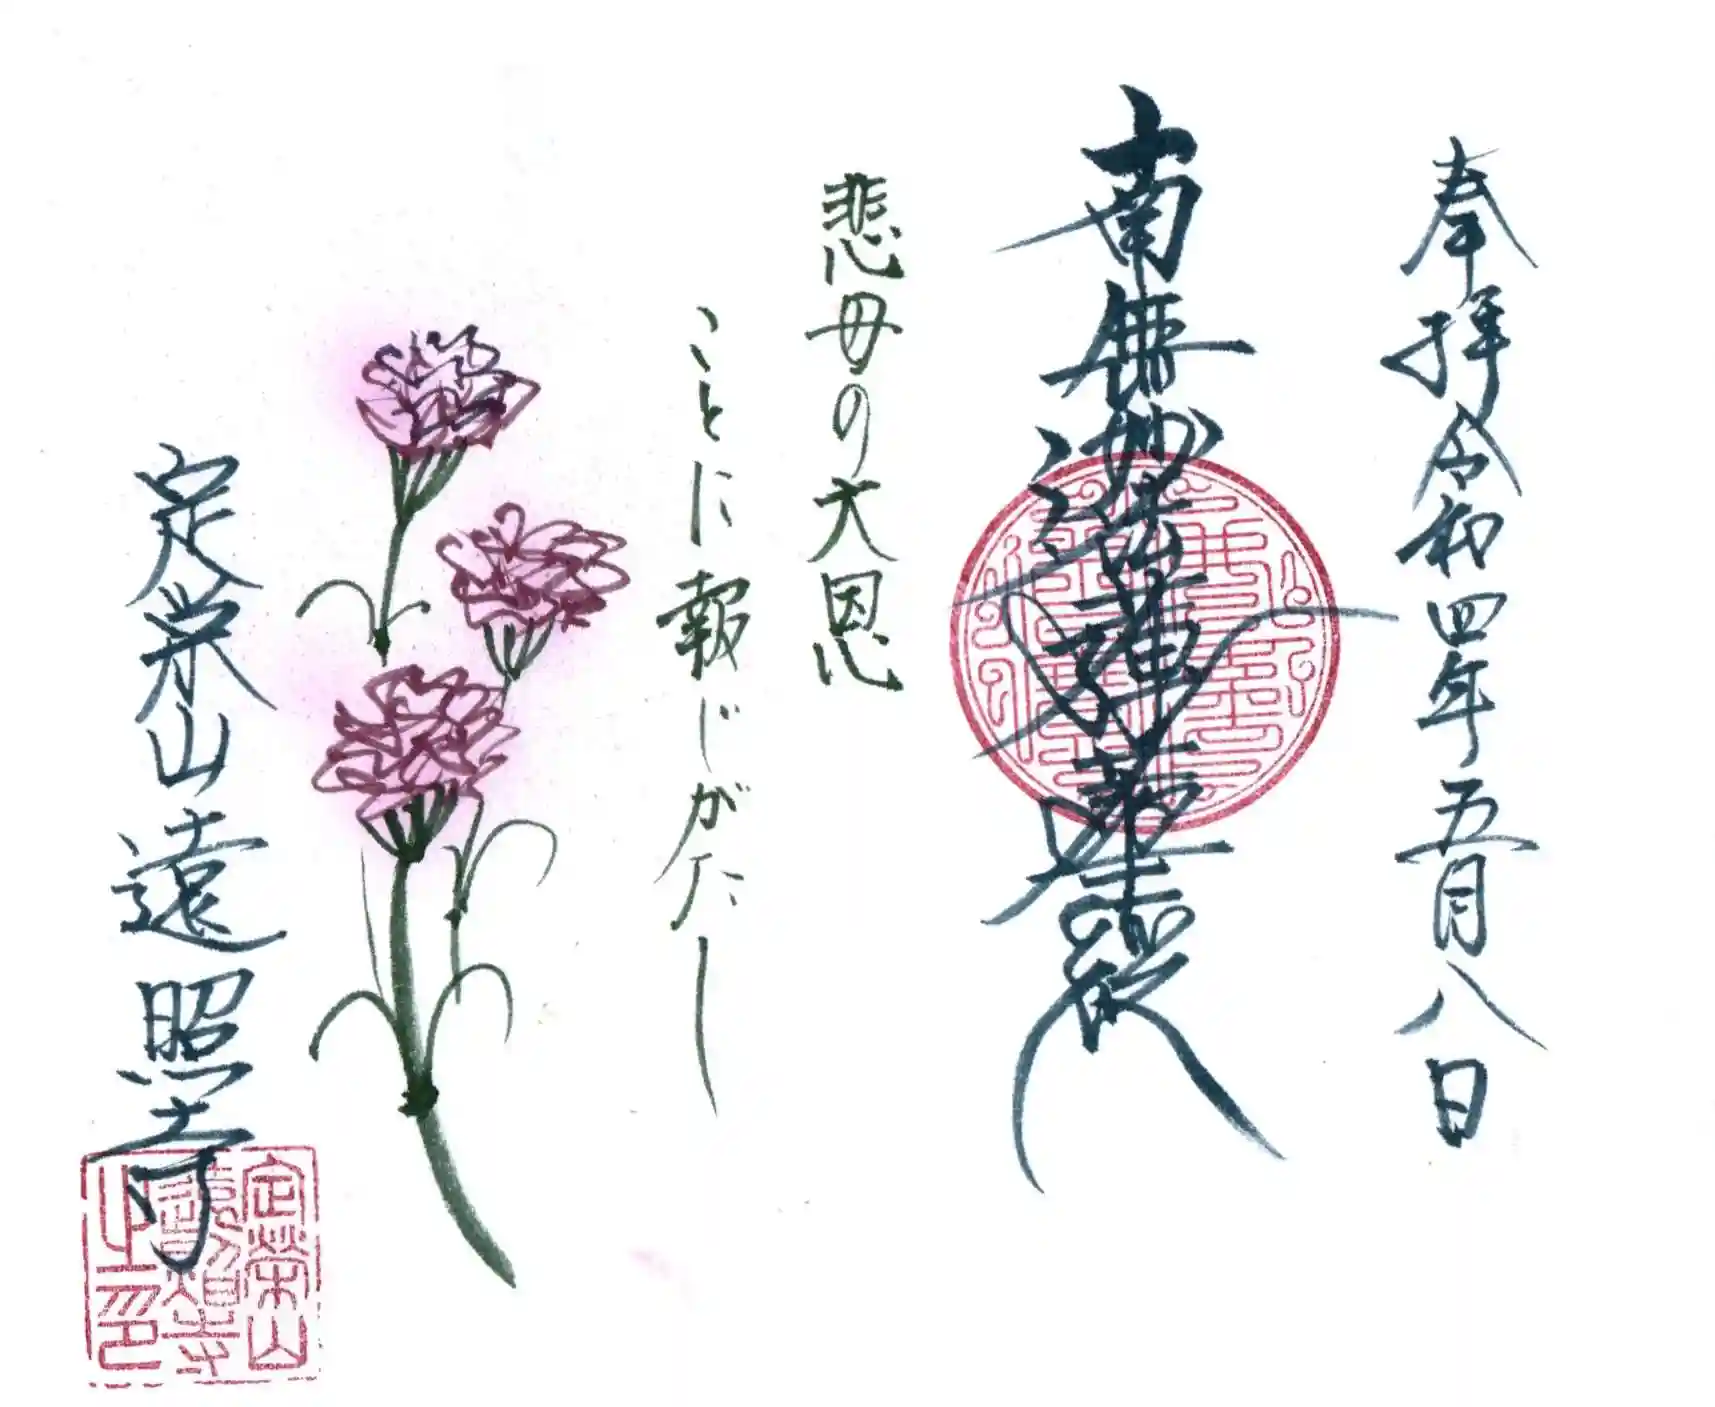 奉拝令和四年五月八日
南無妙法蓮華経
悲母の大恩
ことに報じがたし
定栄山遠照寺
定榮山
遠照寺
之印